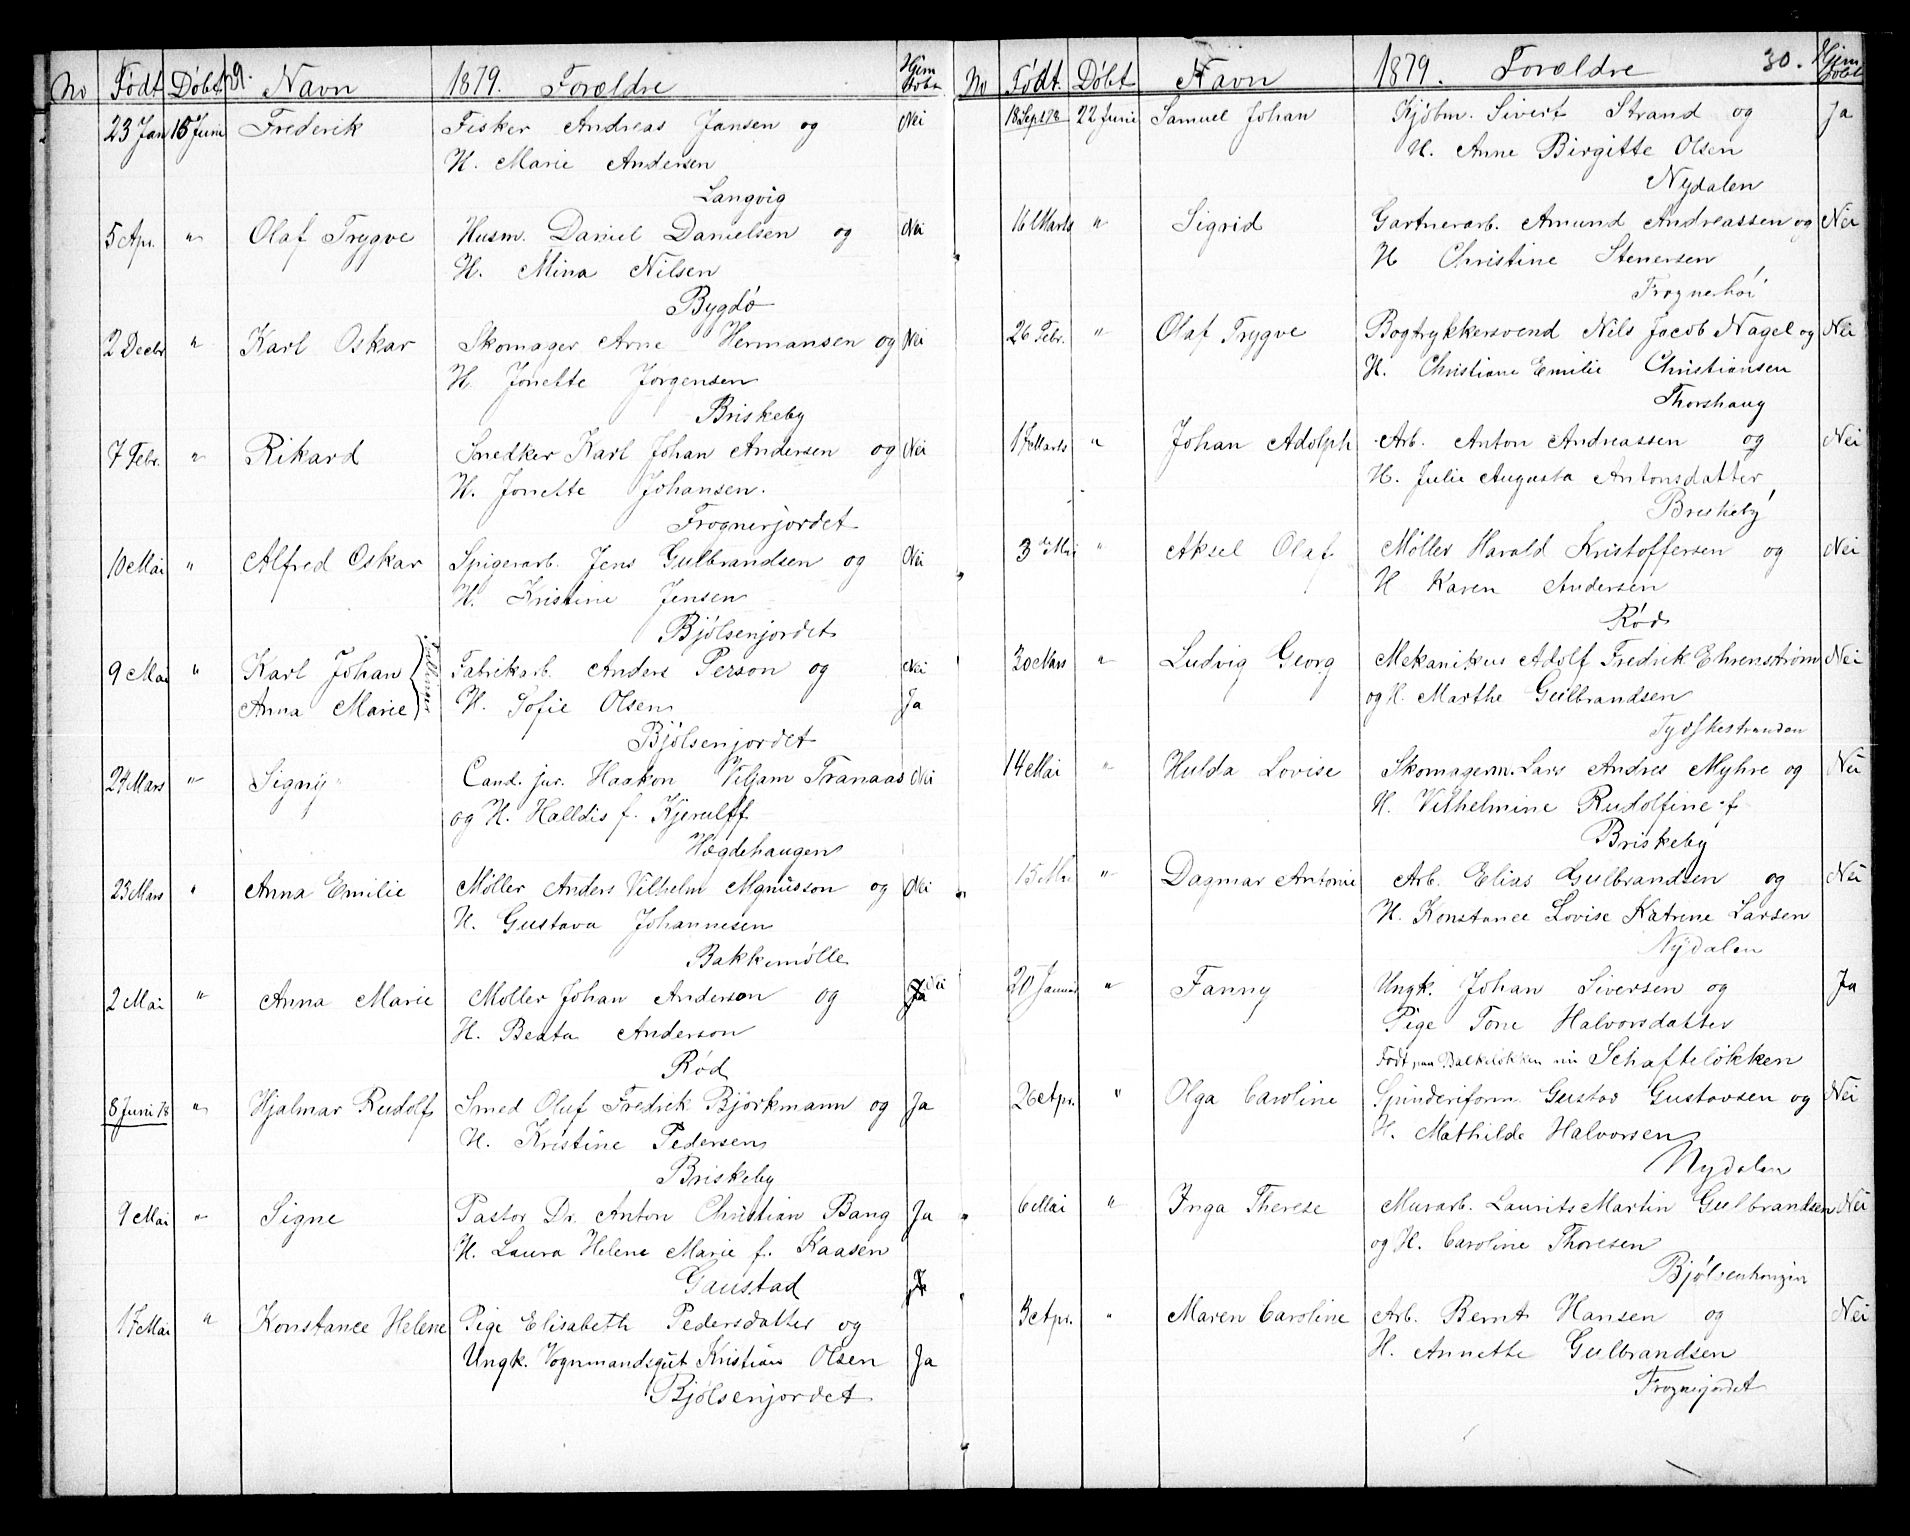 No Født Døbt Navn 1879. Forældre Hjem døbt
23 Jan 15 Juni Frederik Fisker Andreas Jansen og Nei
H. Marie Andersen
Langvig
5 Apr. " Olaf Trygve Husm. Daniel Danielsen og Nei
H. Mina Nilsen
Bygdö
2 Decbr " Karl Oskar Skomager Arne Hermansen og Nei
H. Jonette Jørgensen
Briskeby
7 Febr. " Rikard Snedker Karl Johan Andersen og Nei
H. Jonette Johansen.
Frognerjordet
10 Mai " Alfred Oskar Spigerarb. Jens Gulbrandsen og Nei
H. Kristine Jensen
Bjölsenjordet
9 Mai " Karl Johan Tvillinger Fabrikarb. Anders Person og Nei
Anna Marie H. Sofie Olsen Ja
Bjölsenjordet
24 Mars " Signy Cand. jur. Haakon Viljam Tranaas Nei
og H. Halldis f. Kjerulff
Hægdehaugen
23 Mars " Anna Emilie Møller Anders Vilhelm Magnusson og Nei
H. Gustava Johannesen
Bakkemølle
2 Mai " Anna Marie Møller Johan Anderson og Nei
H. Beata Anderson
Rød
8 Juni 78 " Hjalmar Rudolf Smed Oluf Fredrik Björkmann og Ja
H. Kristine Pedersen
Briskeby
9 Mai " Signe Pastor Dr. Anton Christian Bang Ja
H. Laura Helene Marie f. Kaasen
Gaustad
17 Mai " Konstance Helene Pige Elisabeth Pedersdatter og
Ungk. Vognmandsgut Kristian Olsen Ja
Bjölsenjordet
No Født. Døbt Navn 1879. Forældre 30. Hjem døbt
18 Sept 78 22 Juni Samuel Johan Kjøbm. Sivert Strand og Ja
H. Anne Birgitte Olsen
Nydalen
16 Marts " Sigrid Gartnerarb. Amund Andreassen og Nei
H Christine Stenersen
Frognerhöi
26 Febr. " Olaf Trygve Bogtrykkersvend Nils Jacob Nagel og Nei
H. Christiane Emilie Christiansen
Thorshaug
17 Marts " Johan Adolph Arb. Anton Andreassen og Nei
H. Julie Augusta Antonsdatter
Briskeby
3 Mai " Aksel Olaf Møller Harald Kristoffersen og Nei
H Karen Andersen
Rød
30 Mars " Ludvig Georg Mekanikus Adolf Fredrik Ehrenstrøm Nei
og H. Marthe Gulbrandsen
Tydskestranden
14 Mai " Hulda Lovise Skomagerm. Lars Andres Myhre og Nei
H. Vilhelmine Rudolfine f
Briskeby
15 Mai " Dagmar Antonie Arb. Elias Gulbrandsen og Nei
H. Konstance Lovise Katrine Larsen
Nydalen
20 Januar " Fanny Ungk. Johan Siversen og Ja
Pige Tone Halvorsdatter
Født paa Balkeløkken nu Schafteløkken
26 Apr. " Olga Caroline Spinderiform. Gustav Gustavsen og Nei
H. Mathilde Halvorsen
Nydalen
6 Mai " Inga Therese Murarb. Laurits Martin Gulbrandsen Nei
og H. Caroline Thoresen
Bjølsenhougen
3 Apr. " Maren Caroline Arb. Bernt Hansen og Nei
H. Annette Gulbrandsen
Frognerjordet